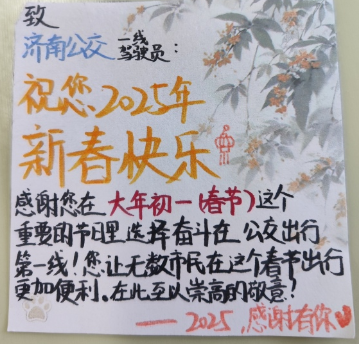 致
济南公交 一线
驾驶员：
祝您2025年
新春快乐
感谢您在 大年初一(春节)这个
重要的节日里选择奋斗在公交出行
第一线！您让无数市民在这个春节出行
更加便利。在此至以崇高的敬意！
——2025,感谢有你